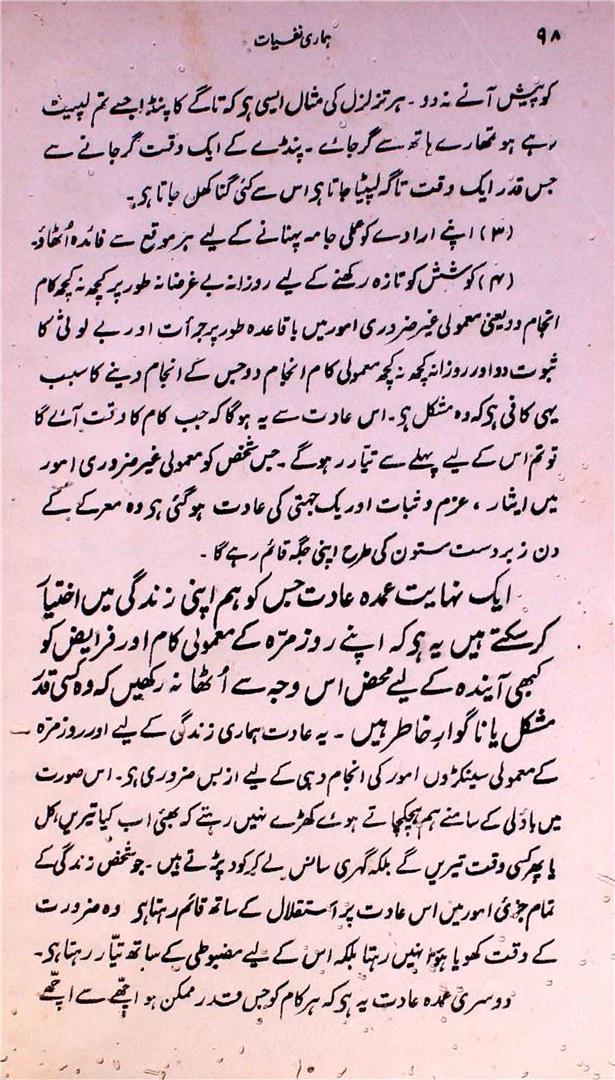 ۹۸
ہماری نفسیات
کو پیش آنے نہ دو ۔ ہر تزلزل کی مثال ایسی ہو کہ تاگے کا پنڈا جسے تم لپیٹ
رہے ہو تمھارے ہاتھ سے گر جائے ۔ پنڈے کے ایک وقت گر جانے سے
جس قدر ایک وقت تاگہ لپیٹا جاتا ہو اس سے کئی گنا کھل جاتا ہو ۔
(۳) اپنے ارادے کو عملی جامہ پہنانے کے لیے ہر موقع سے فائدہ اُٹھاؤ ۔
(۴) کوشش کو تازہ رکھنے کے لیے روزانہ بے غرضانہ طور پر کچھ نہ کچھ کام
انجام دو یعنی معمولی غیر ضروری امور میں باقاعدہ طور پر جرأت اور بے لوثی کا
ثبوت دو اور روزانہ کچھ نہ کچھ معمولی کام انجام دو جس کے انجام دینے کا سبب
یہی کافی ہو کہ وہ مشکل ہو ۔ اس عادت سے یہ ہوگا کہ جب کام کا وقت آئے گا
تو تم اس کے لیے پہلے سے تیار رہوگے ۔ جس شخص کو معمولی غیر ضروری امور
میں ایثار ، عزم و ثبات اور یک جہتی کی عادت ہو گئی ہو وہ معرکے کے
دن زبردست ستون کی طرح اپنی جگہ قائم رہے گا ۔
ایک نہایت عمدہ عادت جس کو ہم اپنی زندگی میں اختیار
کر سکتے ہیں یہ ہو کہ اپنے روز مرّہ کے معمولی کام اور فرایض کو
کبھی آیندہ کے لیے محض اس وجہ سے اُٹھا نہ رکھیں کہ وہ کسی قدر
مشکل یا ناگوارِ خاطر ہیں ۔ یہ عادت ہماری زندگی کے لیے اور روز مرّہ
کے معمولی سینکڑوں امور کی انجام دہی کے لیے ازبس ضروری ہو ۔ اس صورت
میں باؤلی کے سامنے ہم ہچکچاتے ہوئے کھڑے نہیں رہتے کہ بھئی اب کیا تیریں کل
یا پھر کسی وقت تیریں گے بلکہ گہری سانس لے کر کود پڑتے ہیں ۔ جو شخص زندگی کے
تمام جزئی امور میں اس عادت پر استقلال کے ساتھ قائم رہتا ہو وہ ضرورت
کے وقت کھویا ہوا نہیں رہتا بلکہ اس کے لیے مضبوطی کے ساتھ تیار رہتا ہو ۔
دوسری عمدہ عادت یہ ہو کہ ہر کام کو جس قدر ممکن ہو اچھّے سے اچھّے